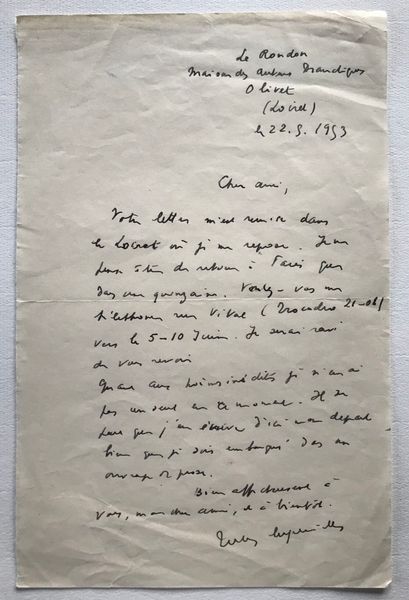 Le Rondon
Maison des auteurs dramatiques
Olivet
(Loiret)
le 22.5.1953
Cher ami,
Votre lettre m'est remise dans
le Loiret où je me repose. Je ne
pense être de retour à Paris que
dans une quinzaine. Voulez-vous me
téléphoner rue Vital (Trocadéro 21-06)
vers le 5-10 Juin. Je serai ravi
de vous revoir
Quant aux poèmes inédits je n'en ai
pas un seul en ce moment. Il se
peut que j'en écrive d'ici mon départ
bien que je sois embarqué dans un
ouvrage de prose.
Bien affectueusement à
vous, mon cher ami, et à bientôt.
Jules Supervielle